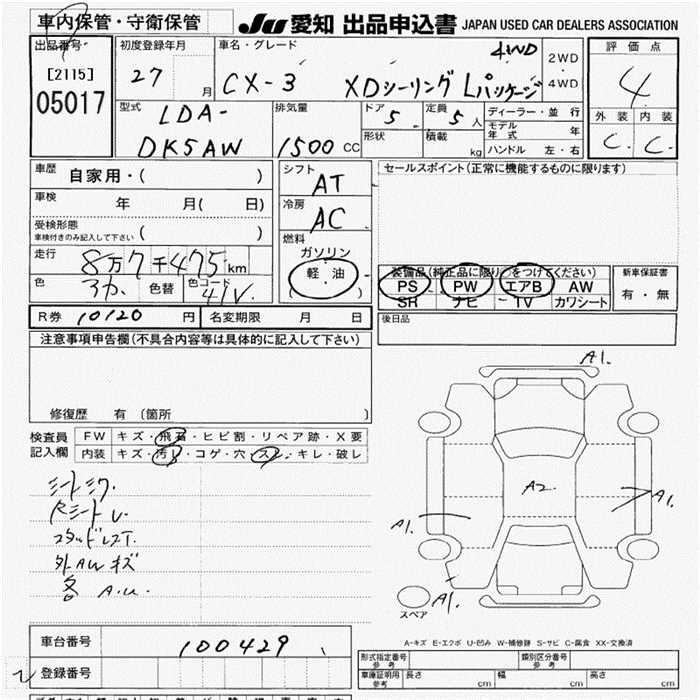 車内保管・守衛保管
JU 愛知 出品申込書 JAPAN USED CAR DEALERS ASSOCIATION
出品番号
[2115]
05017
初度登録年月
27 月
車名・グレード
4WD
CX-3 XDツーリング Lパッケージ
2WD
・
4WD
評価点
4
外装 内装
C. C.
型式
LDA-
DK5AW
排気量
1500 CC
ドア 5
形状
定員 5 人
積載 kg
ディーラー・並行
モデル年式 年
ハンドル 左・右
車歴 自家用・( )
車検 年 月( 日)
受検形態
車検付きのみ記入して下さい ( )
走行 8万7千475km
色 アカ 色替 色コード 41V
シフト
AT
冷房
AC
燃料
ガソリン
軽・油
( )
セールスポイント(正常に機能するものに限ります)
装備品(純正品に限り○をつけてください)
PS PW エアB AW
SR ナビ TV カワシート
新車保証書
有・無
R券 10120 円 名変期限 月 日
後日品
注意事項申告欄(不具合内容等は具体的に記入して下さい)
修復歴 有 (箇所
検査員
記入欄
FW キズ・飛石・ヒビ割・リペア跡・X要
内装 キズ・汚レ・コゲ・穴・スレ・キレ・破レ
シートシワ.
スタッドレスT.
外AWキズ
各 A.U.
A1.
A2.
A1.
A1.
A1.
スペア
A-キズ E-エクボ U-凹み W-補修跡 S-サビ C-腐食 XX-交換済
車台番号 100429
登録番号
型式指定番号
参考
類別区分番号
参考
車庫証明用
参考
長さ cm 幅 cm 高さ cm